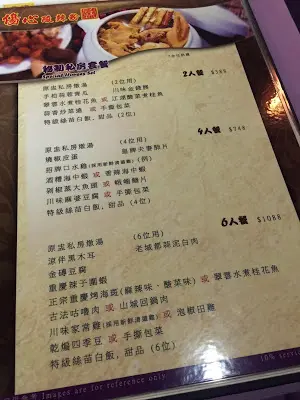 Special Dinner Set
2人餐 $388
原盅私房燉湯 (2位用)
手拍蒜蓉青瓜 川味金錢肚
翠雲水煮桂花魚 或 江湖酸菜桂魚
蒜香炒菜遠 或 手撕包菜
特級絲苗白飯，甜品 (2位)
4人餐 $748
原盅私房燉湯 (4位用)
燒椒皮蛋 夫妻肺片
招牌口水雞(採用新鮮清遠雞) (例)
酒糟海中蝦 或 香辣海中蝦
剁椒蒸大魚頭 或
川味麻婆豆腐 或 手撕包菜
特級絲苗白飯，甜品 (4位)
6人餐 $1088
原盅私房燉湯 (6位用)
涼伴黑木耳 老城都蒜泥白肉
金磚豆腐
重慶辣子圍蝦
正宗重慶烤海斑(麻辣味、酸菜味) 或 翠雲水煮桂花魚
古法咕嚕肉 或 山城回鍋肉
川味家常雞(採用新鮮清遠雞) 或 泡椒田雞
乾煸四季豆 或 手撕包菜
特級絲苗白飯，甜品 (6位)
Images are for reference only
10%